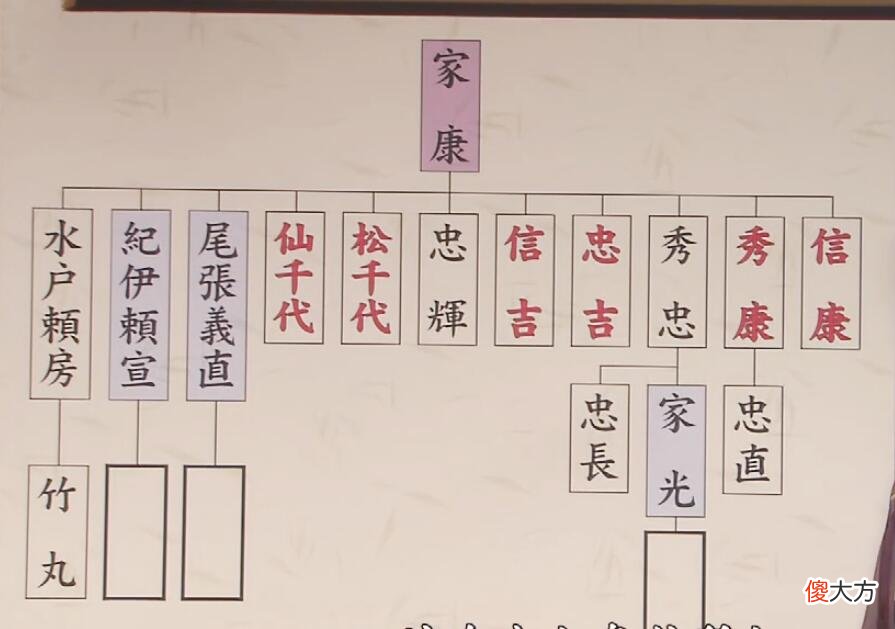 家康
信康
秀康
秀忠
忠吉
信吉
忠輝
松千代
仙千代
尾張義直
紀伊頼宣
水户頼房
忠直
家光
忠長
竹丸
傻大方